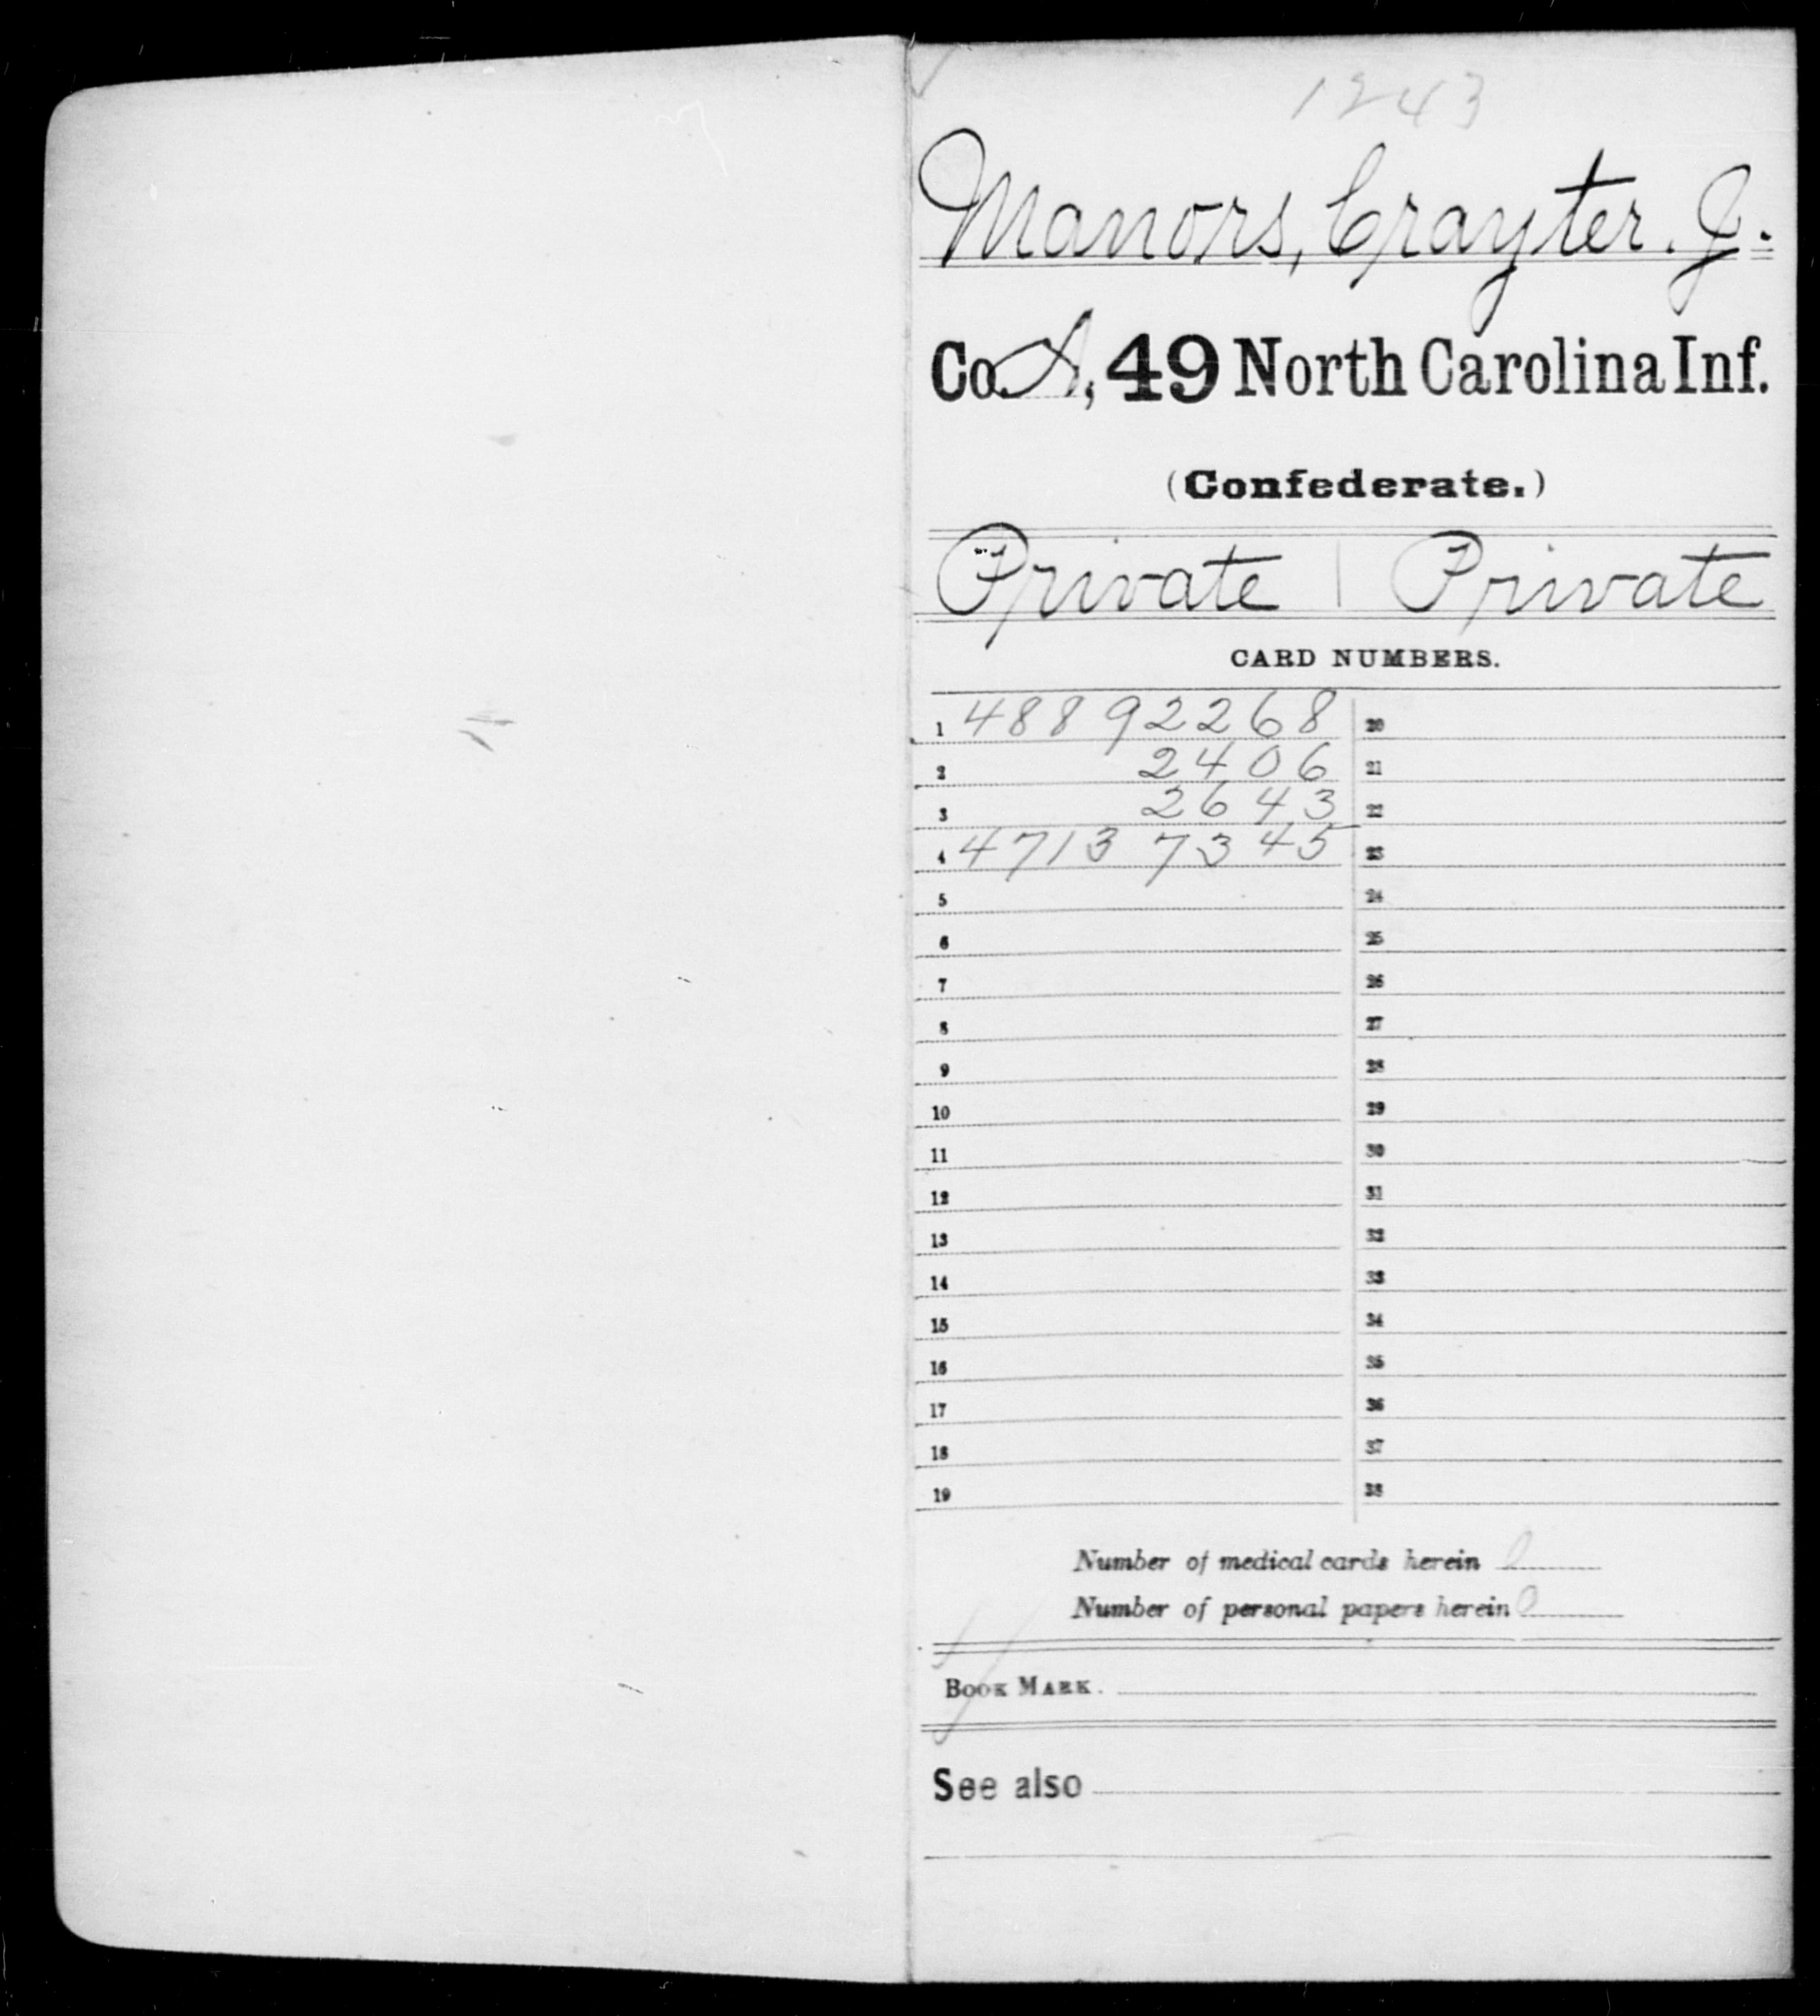 1243
Manors, Crayter. J.
Co. A, 49 North Carolina Inf.
(Confederate.)
Private | Private
CARD NUMBERS.
1 48892268 20
2 2406 21
3 2643 22
4 47137345 23
5 24
6 25
7 26
8 27
9 28
10 29
11 30
12 31
13 32
14 33
15 34
16 35
17 36
18 37
19 38
Number of medical cards herein 0
Number of personal papers herein 0
BOOK MARK.
See also